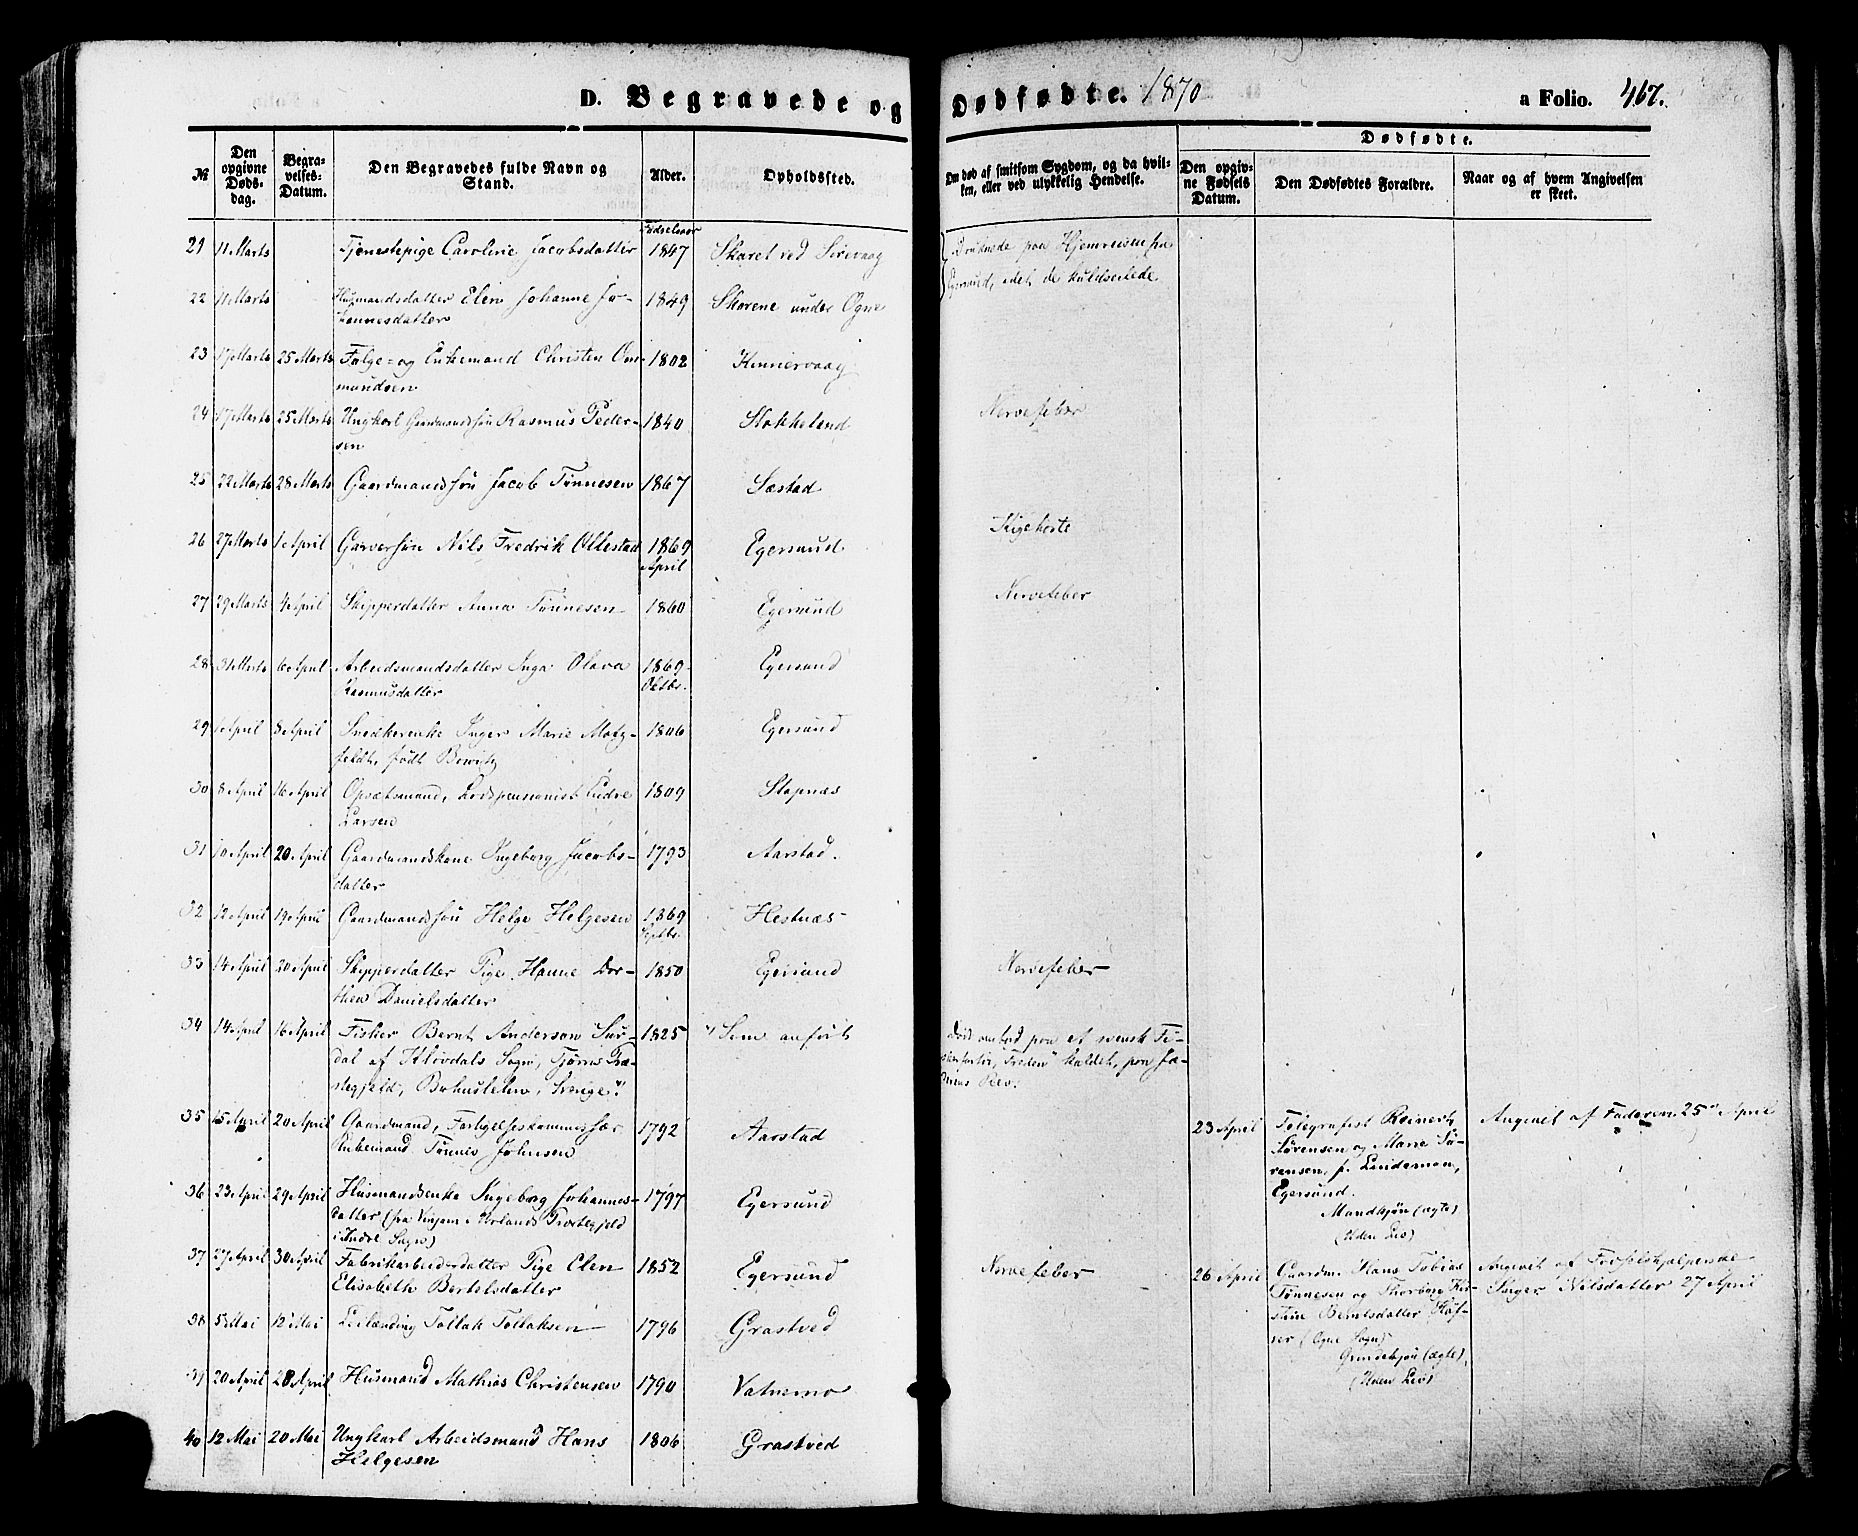 D. Begravede og Dødfødte. 1870 a Folio. 467.
№
Den opgivne Døds-dag.
Begra-velses-Datum.
Den Begravedes fulde Navn og Stand.
Alder.
Opholdssted.
Om død af smitsom Sygdom, og da hvil-ken, eller ved ulykkelig Hendelse.
Dødfødte.
Den opgiv-ne Fødsels Datum.
Den Dødfødtes Forældre.
Naar og af hvem Angivelsen er skeet.
Fødselsaar
21 11 Marts Tjenestepige Caroline Jacobsdatter 1847 Skaret ved Sirevaag Druknede paa Hjemreisen fra
Egersund, idet de kuldseilede
22 11 Marts Husmandsdatter Elen Johanne Jo- 1849 Skorene under Ogne
hannesdatter
23 17 Marts 25 Marts Folge- og Enkemand Christen Om- 1802 Kinnervaag
mundsen
24 17 Marts 25 Marts Ungkarl Gaardmandssøn Rasmus Peder- 1840 Stokkeland Nervefeber
sen
25 22 Marts 28 Marts Gaardmandssøn Jacob Tønnesen 1867 Sæstad
26 27 Marts 1 April Garversøn Nils Fredrik Ollestad 1869 Egersund Kighoste
April
27 29 Marts 4 April Skipperdatter Anna Tønnesen 1860 Egersund Nervefeber
28 31 Marts 6 April Arbeidsmandsdatter Inga Olava 1869 Egersund
Rasmusdatter Oktbr.
29 1 April 8 April Snedkerenke Inger Marie Motz- 1806 Egersund
feldt, født Bowitz
30 8 April 16 April Opsætsmand, Lodspensionist Endre 1809 Stapnæs
Larsen
31 10 April 20 April Gaardmandskone Ingeborg Jacobs- 1793 Aarstad.
datter
32 12 April 19 April Gaardmandssøn Helge Helgesen 1869 Hestnæs
Septbr.
33 14 April 20 April Skipperdatter Pige Hanne Dor- 1850 Egersund Nervefeber
thea Danielsdatter
34 14 April 16 April Fisker Bernt Anderson Sur- 1825 "Som anført Død ombord paa et svensk Fi-
dal af Klövdals Sogn, Tjörns Præ- skerfartøi, "Freden" kaldet, paa Jæ-
stegjeld, Bohuslehn, Sverige." derens Rev.
35 15 April 20 April Gaardmand, Forligelseskommissær 1792 Aarstad
Enkemand Tønnes Johnsen
23 April Telegrafist Reinert Angivet af Faderen 25 April
Sørensen og Marie Sø-
rensen, f. Lindeman,
Egersund.
Mandkjøn (ægte)
(Uden Liv)
36 23 April 29 April Husmandsenke Ingeborg Johannes- 1797 Egersund
datter (fra Vinjam Aurlands Præstegjeld
i Indre Sogn)
37 27 April 30 April Fabrikarbeiderdatter Pige Elen 1852 Egersund Nervefeber
Elisabeth Bertelsdatter
26 April Gaardm. Hans Tobias Angivet af Fødselshjælperske
Tønnesen og Thorborg Kir- Inger Nilsdatter 27 April
stine Berntsdatter
(Ogne Sogn)
(ægte),
(Uden Liv)
38 5 Mai 12 Mai Leilænding Tollak Tollaksen 1796 Grastved
39 20 April 28 April Husmand Mathias Christensen 1790 Vatnemo
40 12 Mai 20 Mai Ungkarl Arbeidsmand Hans 1806 Grastved
Helgesen